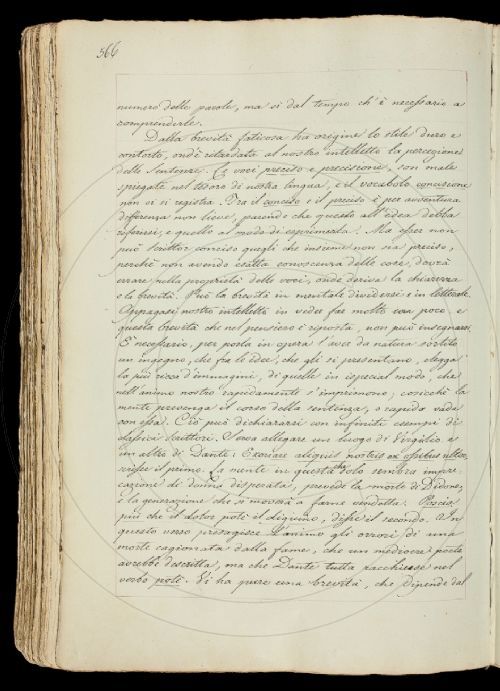 566
numero delle parole, ma sì dal tempo ch'è necessario a
comprenderle.
Dalla brevità faticosa ha origine lo stile duro e
contorto, ond'è retardata al nostro intelletto la percezione
delle sentenze. Le voci preciso e precisione, son male
spiegate nel tesoro di nostra lingua, e il vocabolo concisione
non vi si registra. Tra il conciso e il preciso è per avventura
differenza non lieve, parendo che questo all'idea debba
riferirsi, e quello al modo di esprimerla. Ma esser non
può scrittor conciso quegli che insieme non sia preciso,
perchè non avendo esatta conoscenza delle cose, dovrà
errare nella proprietà delle voci, onde deriva la chiarezza
e la brevità. Può la brevità in mentale dividersi e in letterale.
Appagasi nostro intelletto in veder far molto con poco, e
questa brevità che nel pensiero è riposta, non può insegnarsi.
È necessario, per porla in opera l'aver da natura sortito
un ingegno, che fra le idee, che gli si presentano, elegga
la più ricca d'immagini, di quelle in ispecial modo, che
nell'animo nostro rapidamente s'imprimono, cosicchè la
mente prevenga il corso della sentenza, o rapida vada
con essa. Ciò può dichiararsi con infiniti esempi di
classici scrittori. Giova allegare un luogo di Virgilio e
un altro di Dante: Exoriare aliquis nostris ex ossibus ultor,
scrisse il primo. La mente in questa che solo sembra impre-
cazione di donna disperata, prevede la morte di Didone,
e la generazione che si moverà a farne vendetta. Poscia
più che il dolor potè il digiuno, disse il secondo. In
questo verso presagisce l'animo gli orrori di una
morte cagionata dalla fame, che un mediocre poeta
avrebbe descritta, ma che Dante tutta racchiuse nel
verbo potè. Vi ha pure una brevità, che dipende dal